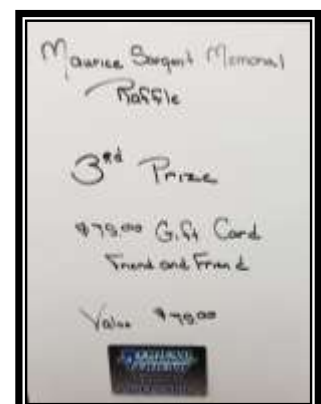 Maurice Sargent Memorial
Raffle
3rd Prize
$75.00 Gift Card
Friend and Friend
Value $75.00
FRIEND